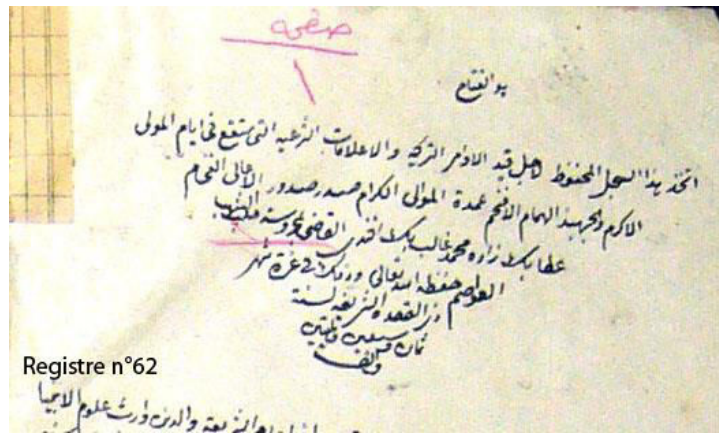 صفحه
١
هو الفتاح
اتخذ هذا السجل المحفوظ لاجل قيد الاوامر التركيه والاعلامات الشرعيه التى ستقع فى ايام المولى
الاكرم والجهبذ الهمام الافخم عمدة الموالى الكرام صدر صدور الاهالى الفخام
عطا بك زاده محمد غالب بك افندى القاضى بمحروسة حلب الشهبا
العواصم حفظه الله تعالى وذلك فى غرة شهر
ذى القعدة الشريفه لسنة
ثمان وسبعين ومائتين
والف
Registre n°62
الشريعه والدين وارث علوم الانبيا